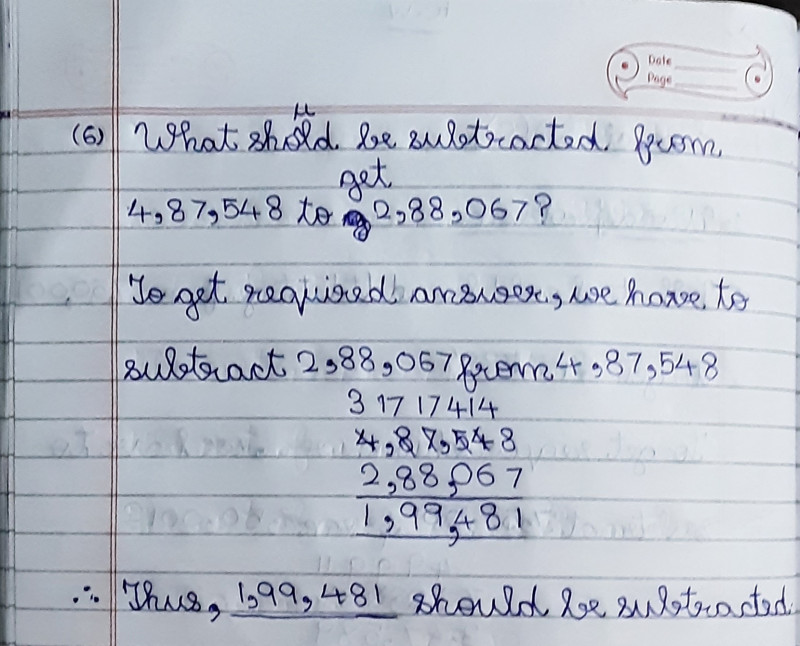 Date
Page
(6) What should be subtracted from
4,87,548 to get 2,88,067?
To get required answer, we have to
subtract 2,88,067 from 4,87,548
3 17 17 4 14
4,87,548
2,88,067
1,99,481
∴ Thus, 1,99,481 should be subtracted.